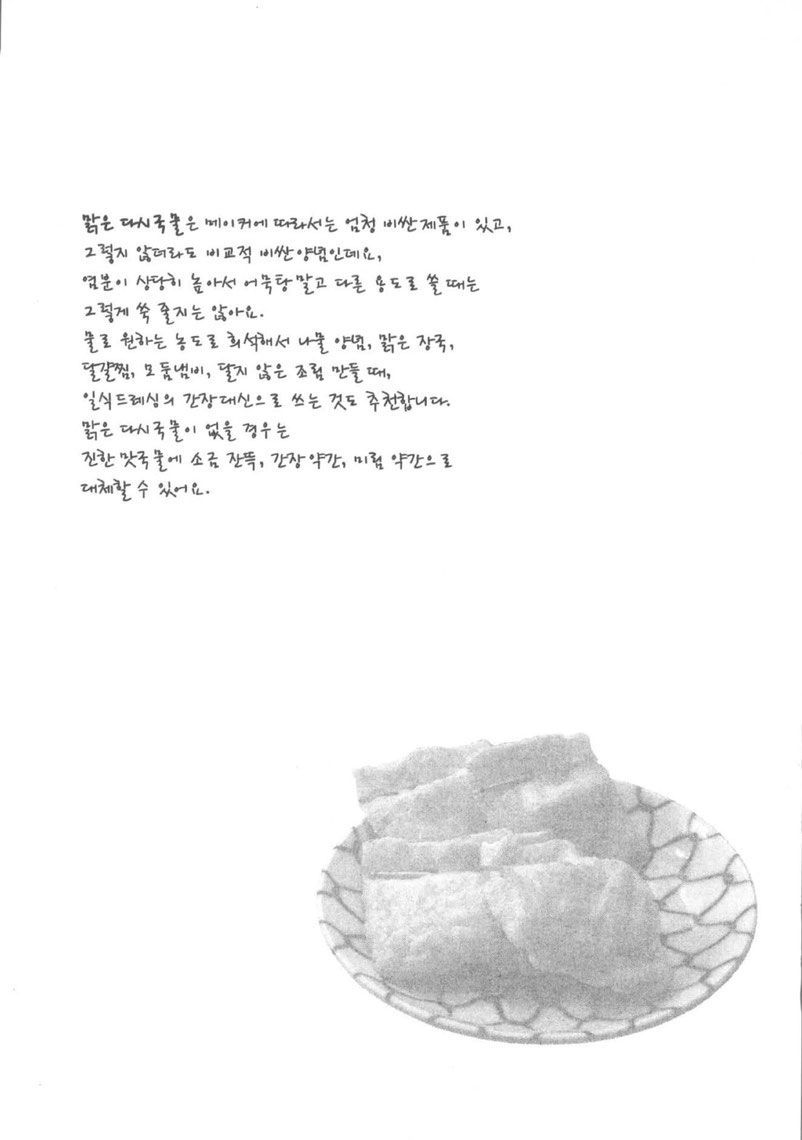 맑은 다시국물은 메이커에 따라서는 엄청 비싼 제품이 있고,
그렇지 않더라도 비교적 비싼 양념인데요,
염분이 상당히 높아서 어묵탕 말고 다른 용도로 쓸 때는
그렇게 쑥 줄지는 않아요.
물로 원하는 농도로 희석해서 나물 양념, 맑은 장국,
달걀찜, 모둠냄비, 달지 않은 조림 만들 때,
일식드레싱의 간장 대신으로 쓰는 것도 추천합니다.
맑은 다시국물이 없을 경우는
진한 맛국물에 소금 잔뜩, 간장 약간, 미림 약간으로
대체할 수 있어요.